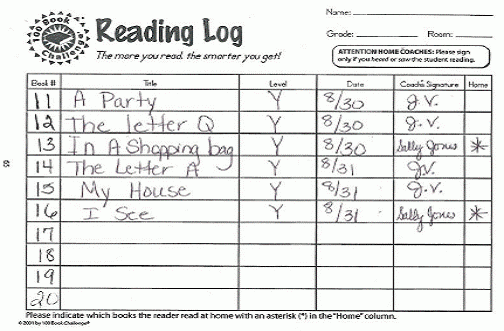 100 Book Challenge®
Reading Log
The more you read, the smarter you get!
Name:
Grade: Room:
ATTENTION HOME COACHES: Please sign
only if you heard or saw the student reading.
Book # Title Level Date Coach's Signature Home
11 A Party Y 8/30 J.V.
12 The letter Q Y 8/30 J.V.
13 In A Shopping bag Y 8/30 Sally Jones *
14 The Letter A Y 8/31 J.V.
15 My House Y 8/31 J.V.
16 I See Y 8/31 Sally Jones *
17
18
19
20
Please indicate which books the reader read at home with an asterisk (*) in the "Home" column.
© 2001 by 100 Book Challenge®